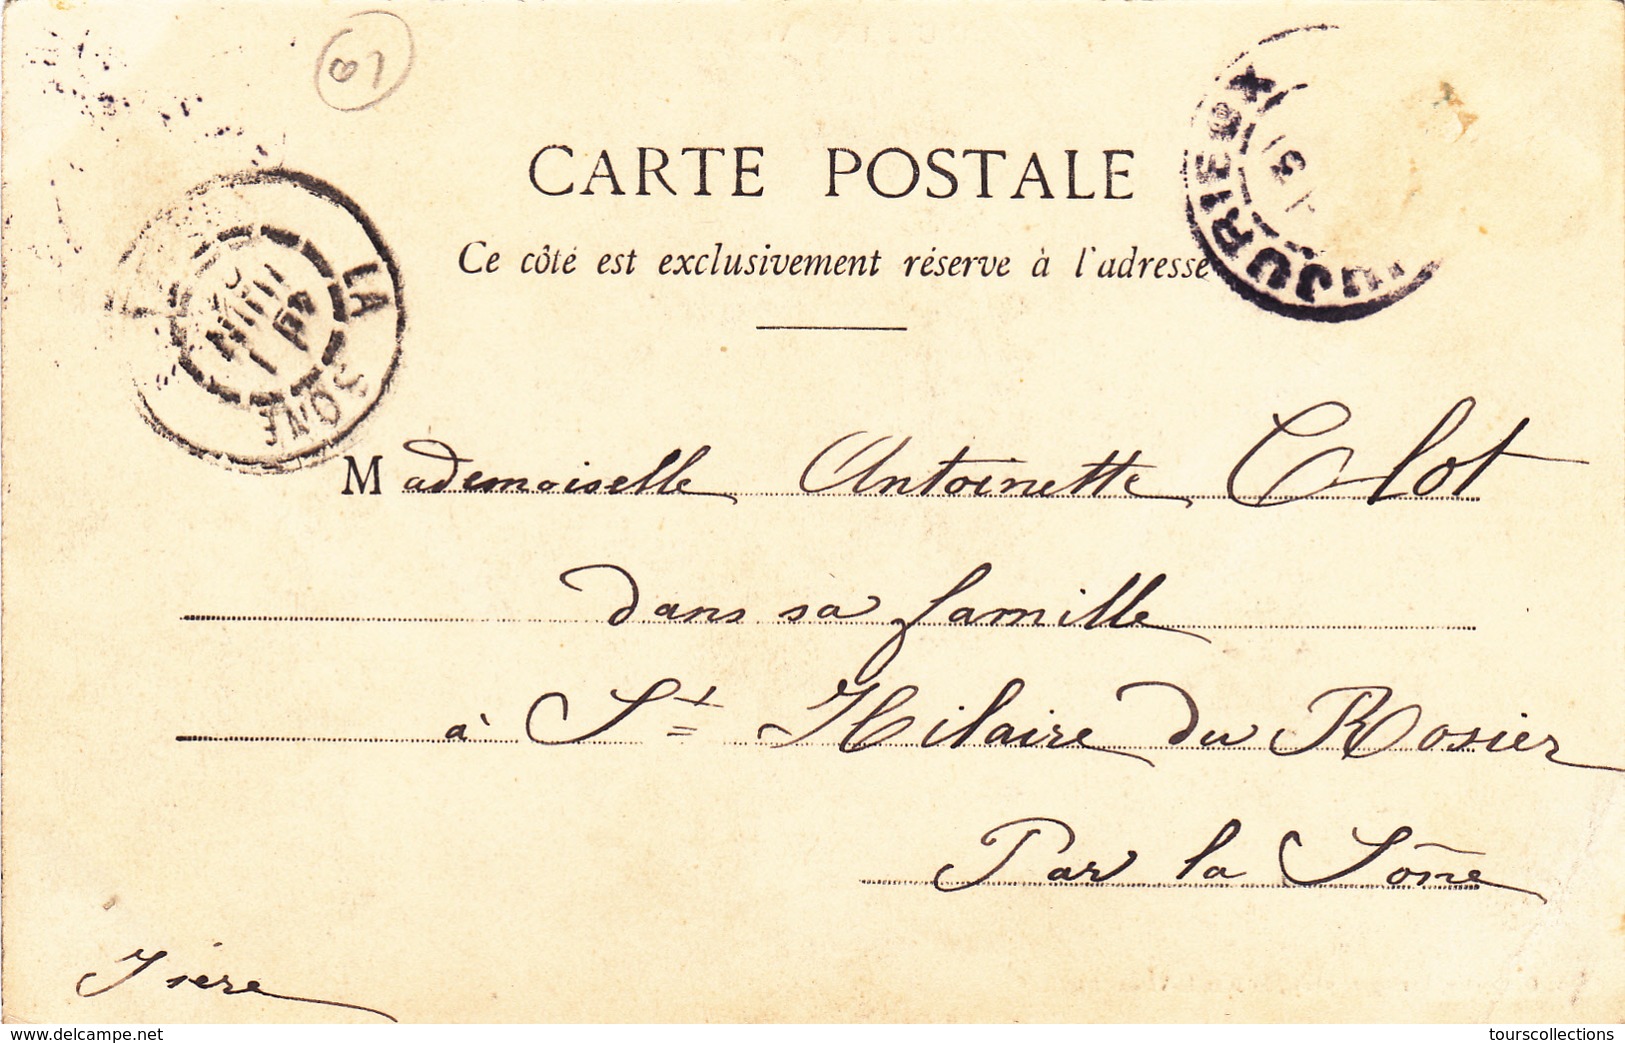 01
CARTE POSTALE
Ce côté est exclusivement réservé à l'adresse
LA SONE
JUIN
JUJURIEUX
Mademoiselle Antoinette Clot
dans sa famille
à St Hilaire du Rosier
Par la Sône
Isère
www.delcampe.net
tourscollections